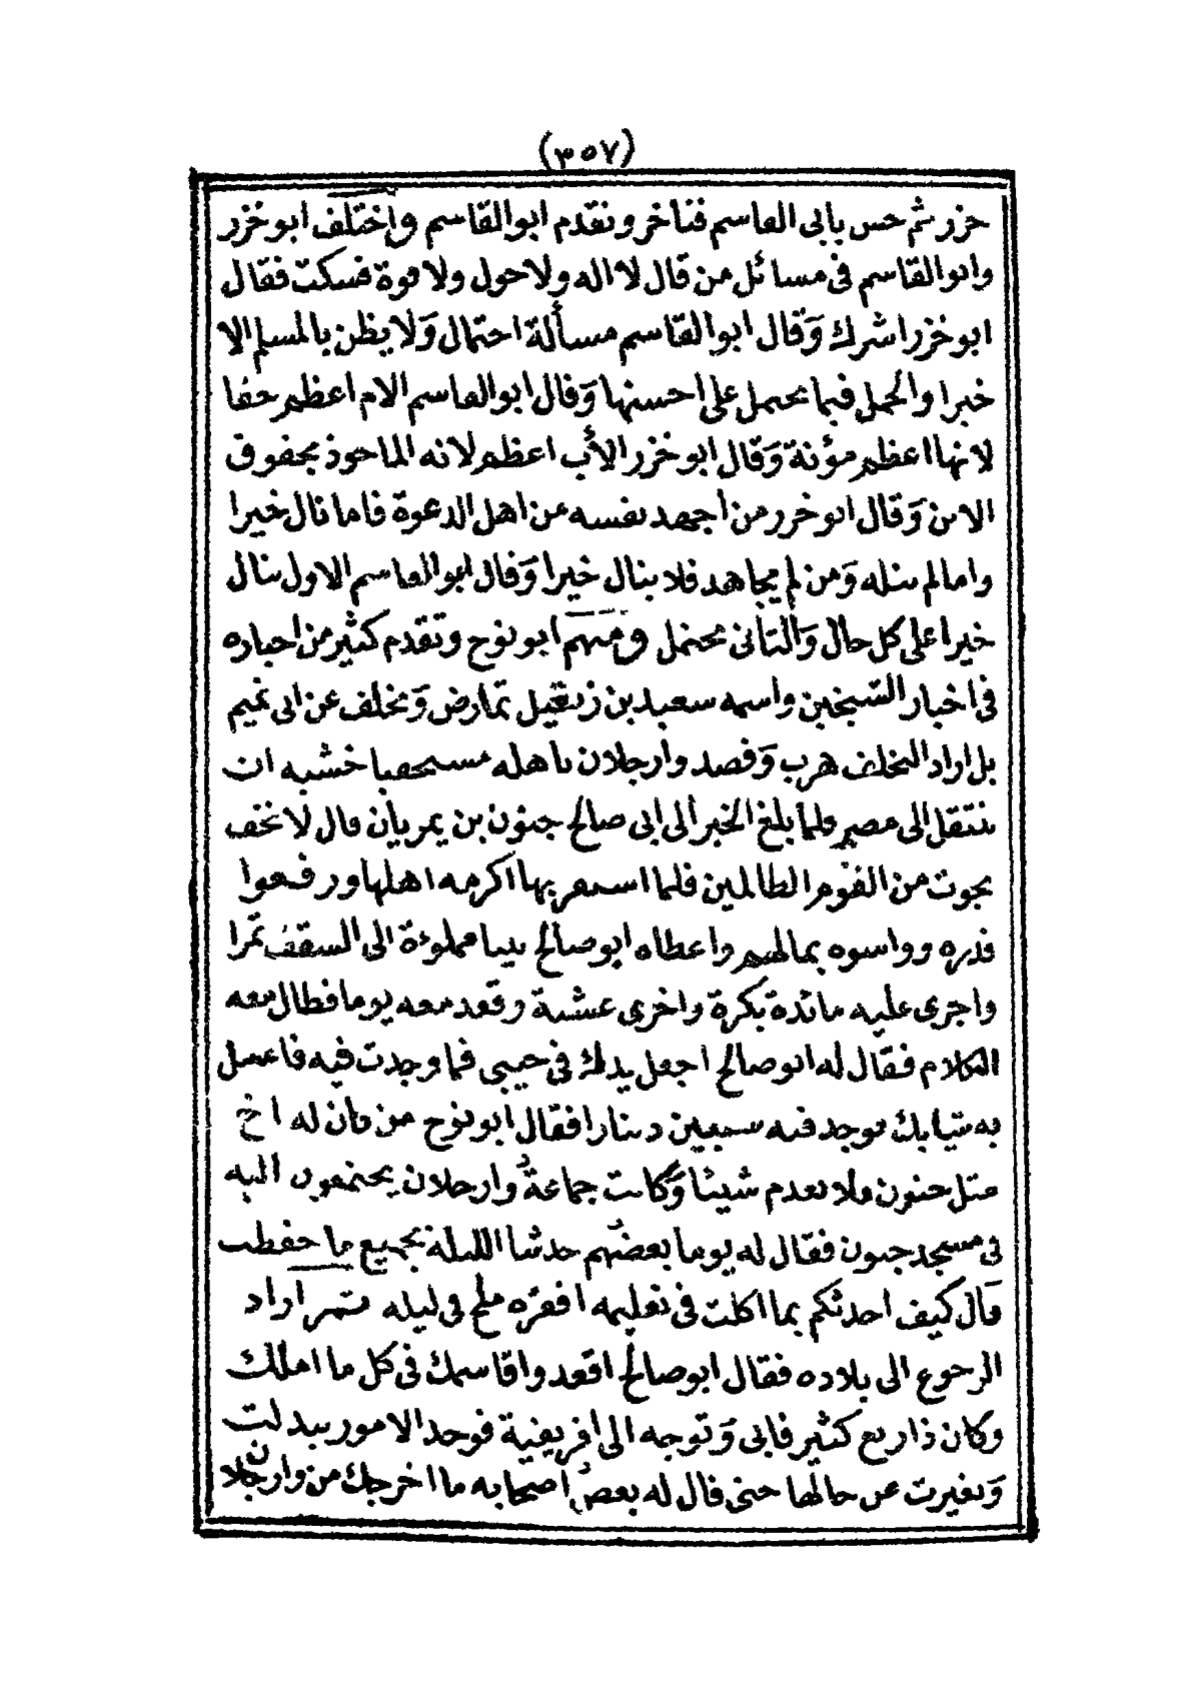 (٣٥٧)
خزر ثم حس بابى القاسم فتأخر وتقدم ابو القاسم واختلف ابو خزر
وابو القاسم فى مسائل من قال لا اله ولا حول ولا قوة فسكت فقال
ابو خزر اشرك وَقال ابو القاسم مسألة احتمال وَلا يظن بالمسلم الا
خيرا والحمل فيما يحتمل على احسنها وَقال ابو القاسم الام اعظم حقا
لانها اعظم مؤنة وَقال ابو خزر الأب اعظم لانه الماخوذ بحقوق
الابن وَقال ابو خزر من اجهد نفسه من اهل الدعوة فاما نال خيرا
واما لم ينله وَمن لم يجاهد فلا ينال خيرا وَقال ابو القاسم الاول ينال
خيرا على كل حال وَالثانى محتمل ومنهم ابو نوح وتقدم كثير من اخباره
فى اخبار الشيخين واسمه سعيد بن زنغيل تمارض وَتخلف عن ابى تميم
بل اراد التخلف هرب وَقصد وارجلان باهله مستخفيا خشيه ان
ينتقل الى مصر فلما بلغ الخبر الى ابى صالح جنون بن يمريان قال لا تخف
نجوت من القوم الظالمين فلما استقر بها اكرمه اهلها ورفعوا
قدره وواسوه بمالهم واعطاه ابو صالح بيتا مملوءة الى السقف تمرا
واجرى عليه مائدة بكرة واخرى عشية وقعد معه يوما فطال معه
الكلام فقال له ابو صالح اجعل يدك فى جيبى فما وجدت فيه فاغسل
به ثيابك فوجد فيه سبعين دينارا فقال ابو نوح من كان له اخ
مثل جنون فلا يعدم شيئا وَكانت جماعة وارجلان يجتمعون اليه
فى مسجد جنون فقال له يوما بعضهم حدثنا الليلة بجميع ما حفظت
قال كيف احدثكم بما اكلت فى تعليمه اقفزه ملح فى ليله ثم اراد
الرجوع الى بلاده فقال ابو صالح اقعد واقاسمك فى كل ما املك
وكان ذا ريع كثير فابى وَتوجه الى افريقية فوجد الامور بيدلت
وَتغيرت عن حالها حتى قال له بعض اصحابه ما اخرجك من وارجلان